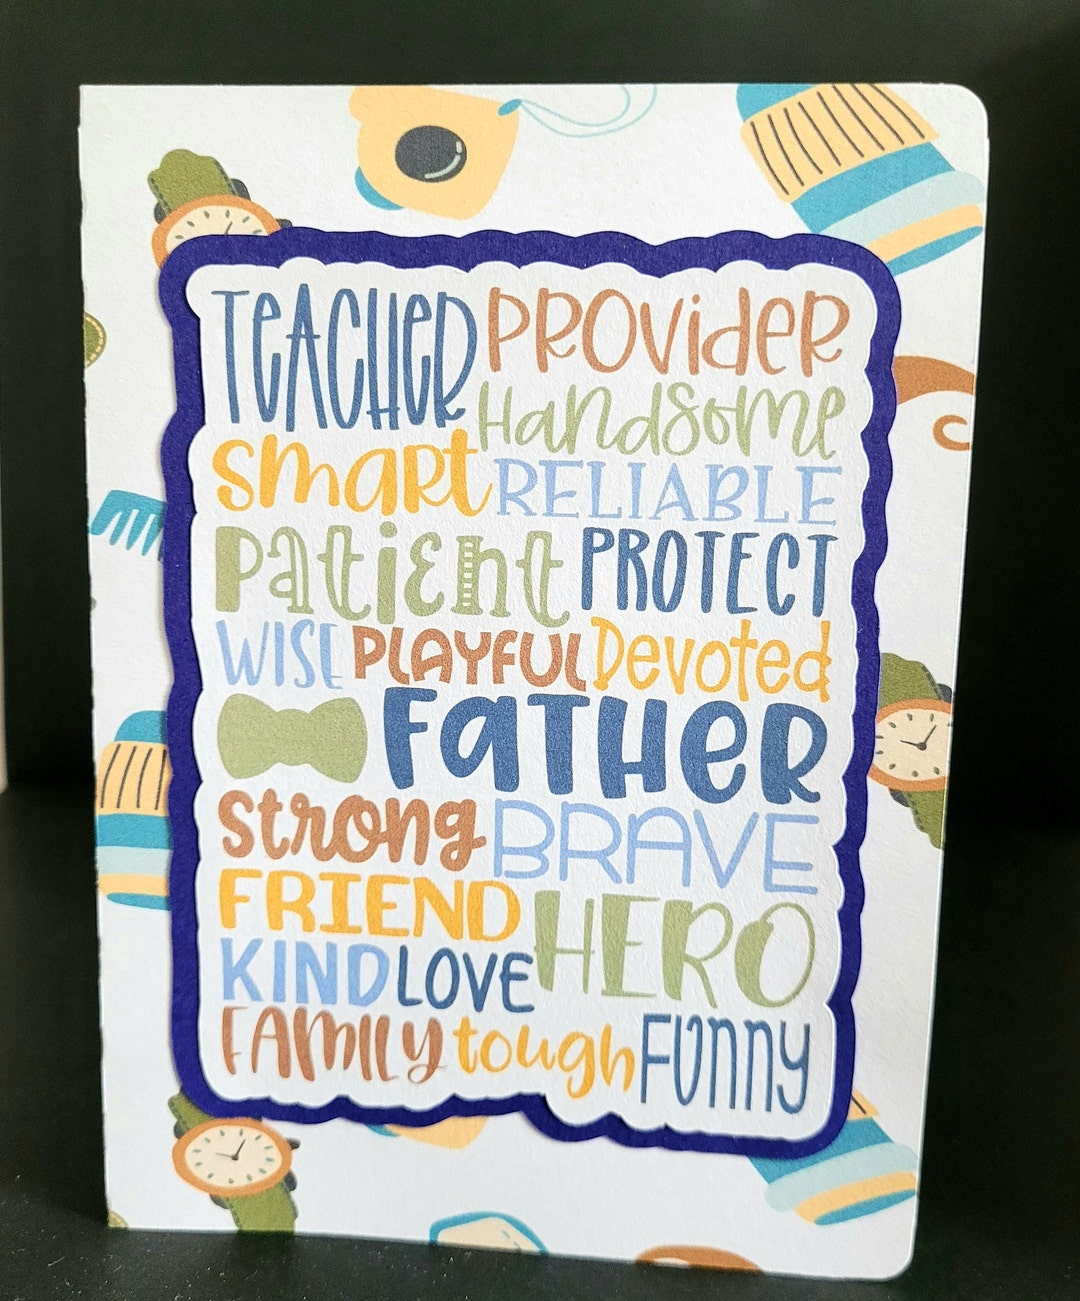 TeACHeR PROVideR
Handsome
smaRt RELIABLE
Patient PROTECT
WISE PLAYFUL Devoted
FatHeR
strong BRAVE
FRIEND HERO
KIND LOVE
FAMILY tough Funny